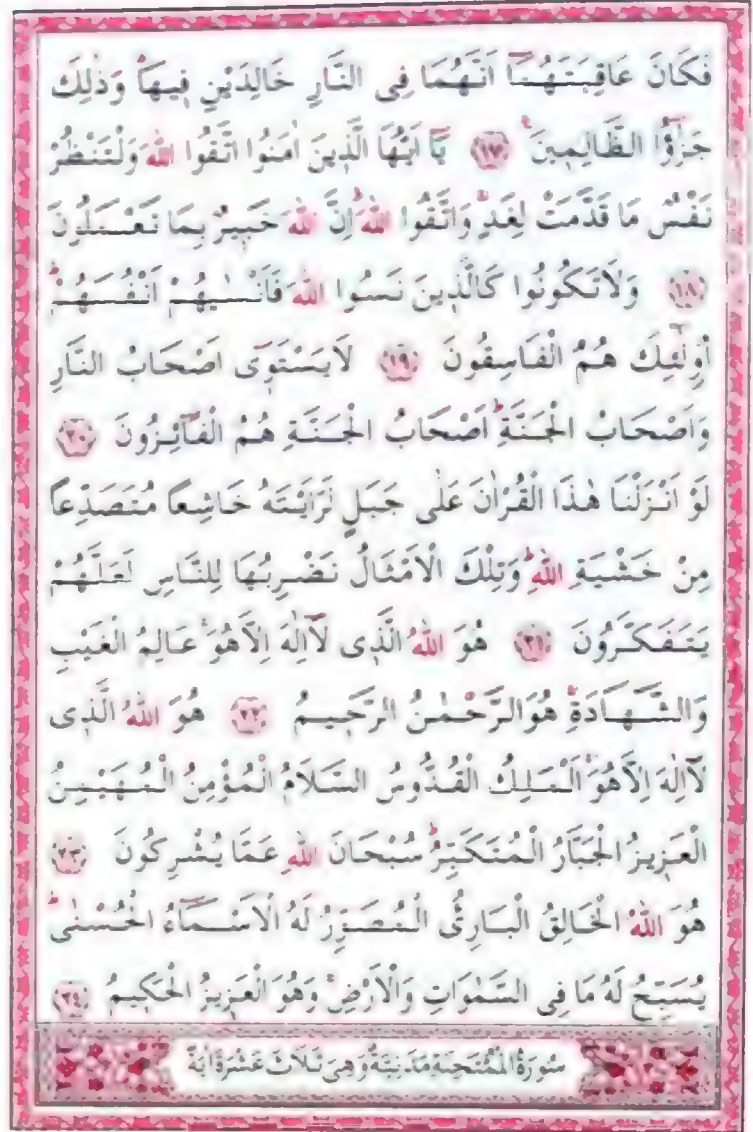 فَكَانَ عَاقِبَتَهُمَٓا اَنَّهُمَا فِى النَّارِ خَالِدَيْنِ فٖيهَاؕ وَذٰلِكَ
جَزٰٓؤُا الظَّالِمٖينَ ﴿١٧﴾ يَٓا اَيُّهَا الَّذٖينَ اٰمَنُوا اتَّقُوا اللّٰهَ وَلْتَنْظُرْ
نَفْسٌ مَا قَدَّمَتْ لِغَدٍۚ وَاتَّقُوا اللّٰهَؕ اِنَّ اللّٰهَ خَبٖيرٌ بِمَا تَعْمَلُونَ
﴿١٨﴾ وَلَا تَكُونُوا كَالَّذٖينَ نَسُوا اللّٰهَ فَاَنْسٰيهُمْ اَنْفُسَهُمْؕ
اُو۬لٰٓئِكَ هُمُ الْفَاسِقُونَ ﴿١٩﴾ لَا يَسْتَوٖٓى اَصْحَابُ النَّارِ
وَاَصْحَابُ الْجَنَّةِؕ اَصْحَابُ الْجَنَّةِ هُمُ الْفَٓائِزُونَ ﴿٢٠﴾
لَوْ اَنْزَلْنَا هٰذَا الْقُرْاٰنَ عَلٰى جَبَلٍ لَرَاَيْتَهُ خَاشِعًا مُتَصَدِّعًا
مِنْ خَشْيَةِ اللّٰهِؕ وَتِلْكَ الْاَمْثَالُ نَضْرِبُهَا لِلنَّاسِ لَعَلَّهُمْ
يَتَفَكَّرُونَ ﴿٢١﴾ هُوَ اللّٰهُ الَّذٖى لَٓا اِلٰهَ اِلَّا هُوَۚ عَالِمُ الْغَيْبِ
وَالشَّهَادَةِۚ هُوَ الرَّحْمٰنُ الرَّحٖيمُ ﴿٢٢﴾ هُوَ اللّٰهُ الَّذٖى
لَٓا اِلٰهَ اِلَّا هُوَۚ اَلْمَلِكُ الْقُدُّوسُ السَّلَامُ الْمُؤْمِنُ الْمُهَيْمِنُ
الْعَزٖيزُ الْجَبَّارُ الْمُتَكَبِّرُؕ سُبْحَانَ اللّٰهِ عَمَّا يُشْرِكُونَ ﴿٢٣﴾
هُوَ اللّٰهُ الْخَالِقُ الْبَارِئُ الْمُصَوِّرُ لَهُ الْاَسْمَٓاءُ الْحُسْنٰىؕ
يُسَبِّحُ لَهُ مَا فِى السَّمٰوَاتِ وَالْاَرْضِۚ وَهُوَ الْعَزٖيزُ الْحَكٖيمُ ﴿٢٤﴾
سُورَةُ الْمُمْتَحِنَةِ مَدَنِيَّةٌ وَهِىَ ثَلَاثَ عَشْرَةَ اٰيَةً